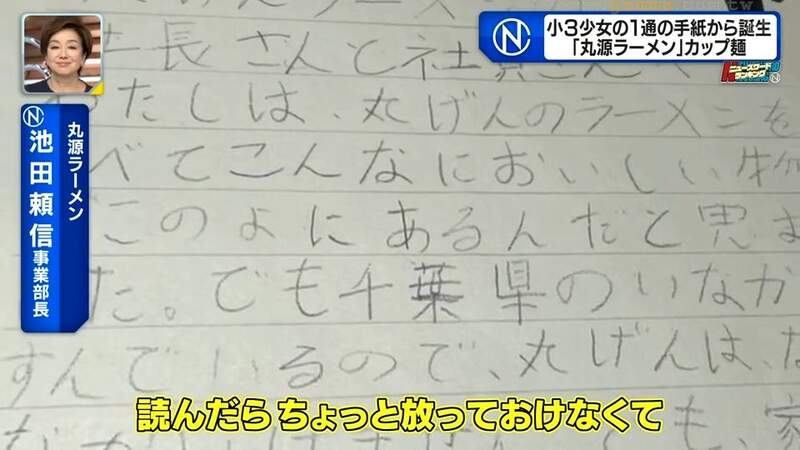 小3少女の1通の手紙から誕生
「丸源ラーメン」カップ麺
ニュースワード
ランキング
丸源ラーメン
池田頼信事業部長
長さんと社員さん
わたしは、丸げんのラーメンを
べてこんなにおいしい物
このよにあるんだと思
た。でも千葉県のいなか
すんでいるので、丸げんは、な
も、家
読んだら ちょっと放っておけなくて